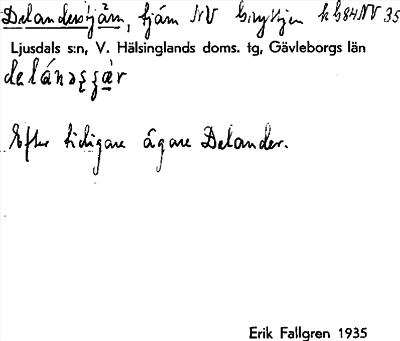 Delanderstjärn, tjärn NV k b84NV35
Ljusdals s:n, V. Hälsinglands doms. tg, Gävleborgs län
Efter tidigare ägare Delander.
Erik Fallgren 1935